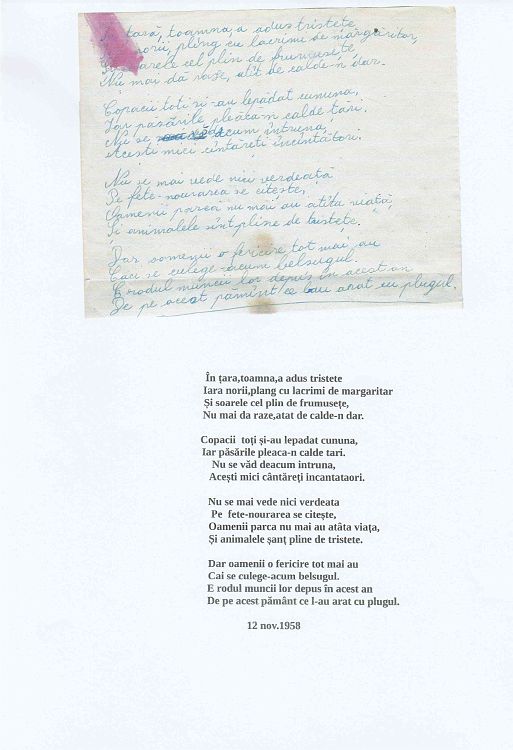 țară, toamna, a adus tristețe,
norii, plîng cu lacrimi de mărgăritar,
soarele cel plin de frumusețe,
Nu mai dă raze, atît de calde-n dar.
Copacii toți și-au lepădat cununa,
Iar păsările pleacă-n calde țări.
Nu se acum întruna,
Acești mici cîntăreți încîntători.
Nu se mai vede nici verdeață
Pe fețe-nourarea se citește,
Oamenii parcă nu mai au atîta viață,
Și animalele sînt pline de tristețe.
Dar oamenii o fericire tot mai au
Căci se culege-acum belșugul.
E rodul muncii lor depus în acest an
De pe acest pămînt ce l-au arat cu plugul.
În țara,toamna,a adus tristete
Iara norii,plang cu lacrimi de margaritar
Și soarele cel plin de frumusețe,
Nu mai da raze,atat de calde-n dar.
Copacii toți și-au lepadat cununa,
Iar păsările pleaca-n calde tari.
Nu se văd deacum intruna,
Acești mici cântăreți incantataori.
Nu se mai vede nici verdeata
Pe fete-nourarea se citește,
Oamenii parca nu mai au atâta viața,
Și animalele sanț pline de tristete.
Dar oamenii o fericire tot mai au
Cai se culege-acum belsugul.
E rodul muncii lor depus în acest an
De pe acest pământ ce l-au arat cu plugul.
12 nov.1958